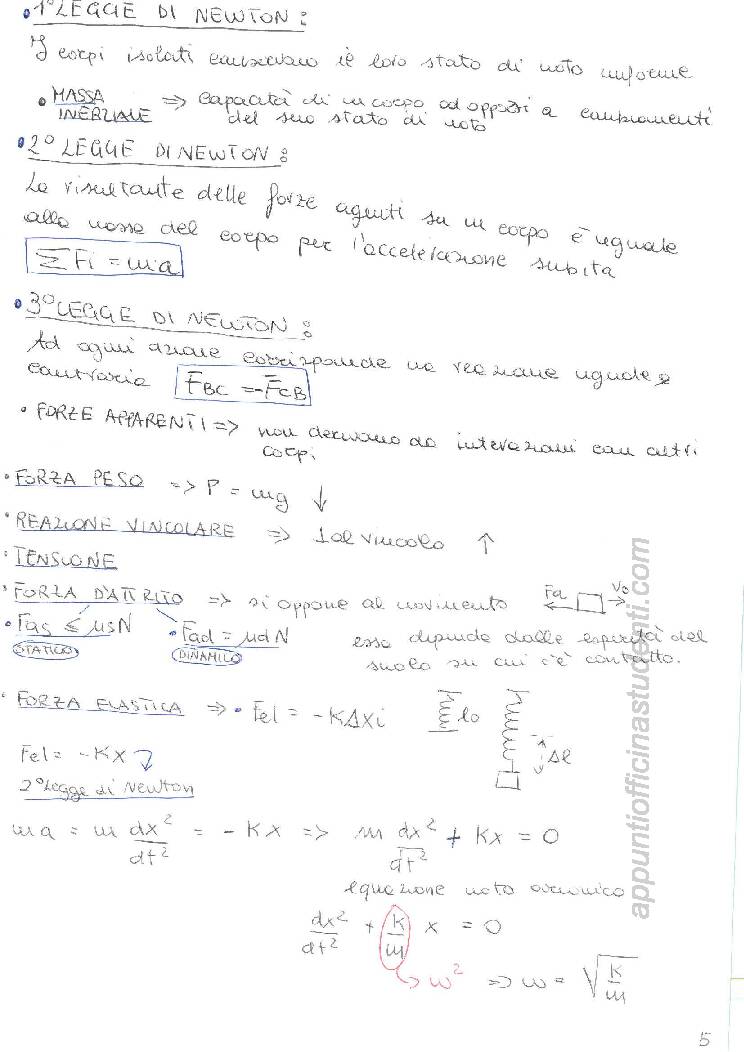 • 1° LEGGE DI NEWTON:
I corpi isolati conservano il loro stato di moto uniforme
• MASSA INERZIALE => capacità di un corpo ad opporsi a cambiamenti
del suo stato di moto
• 2° LEGGE DI NEWTON:
La risultante delle forze agenti su un corpo è uguale
alla massa del corpo per l'accelerazione subita
ΣFi = m·a
• 3° LEGGE DI NEWTON:
Ad ogni azione corrisponde una reazione uguale e
contraria F̄BC = -F̄CB
• FORZE APPARENTI => non derivano da interazioni con altri
corpi
• FORZA PESO => P = mg ↓
• REAZIONE VINCOLARE => ⊥ al vincolo ↑
• TENSIONE
• FORZA D'ATTRITO => si oppone al movimento Fa Vo
• Fas ≤ μsN • Fad = μdN esso dipende dalle asperità del
STATICO DINAMICO suolo su cui c'è contatto.
• FORZA ELASTICA => • Fel = -KΔxi lo Δl
Fel = -Kx
2° Legge di Newton
ma = m dx²/dt² = -Kx => m dx²/dt² + Kx = 0
equazione moto armonico
dx²/dt² + k/m x = 0
ω² => ω = √k/m
5
appuntiofficinastudenti.com